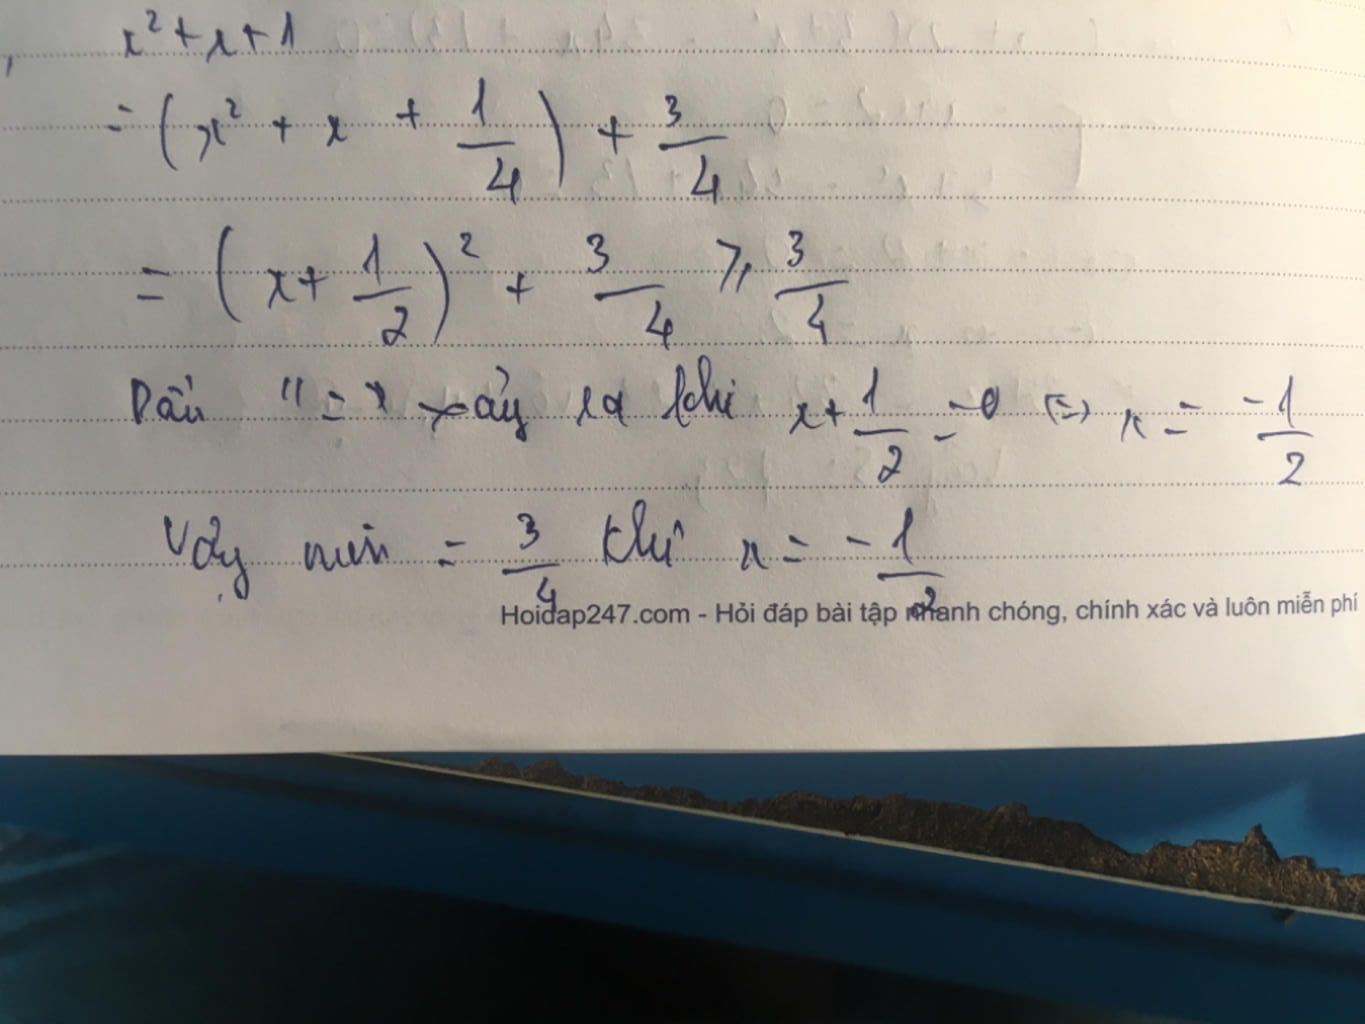 x² + x + 1
= (x² + x + 1/4) + 3/4
= (x + 1/2)² + 3/4 ⩾ 3/4
Dấu "=" xảy ra khi x + 1/2 = 0 (=) x = -1/2
Vậy min = 3/4 khi x = -1/2
Hoidap247.com - Hỏi đáp bài tập nhanh chóng, chính xác và luôn miễn phí